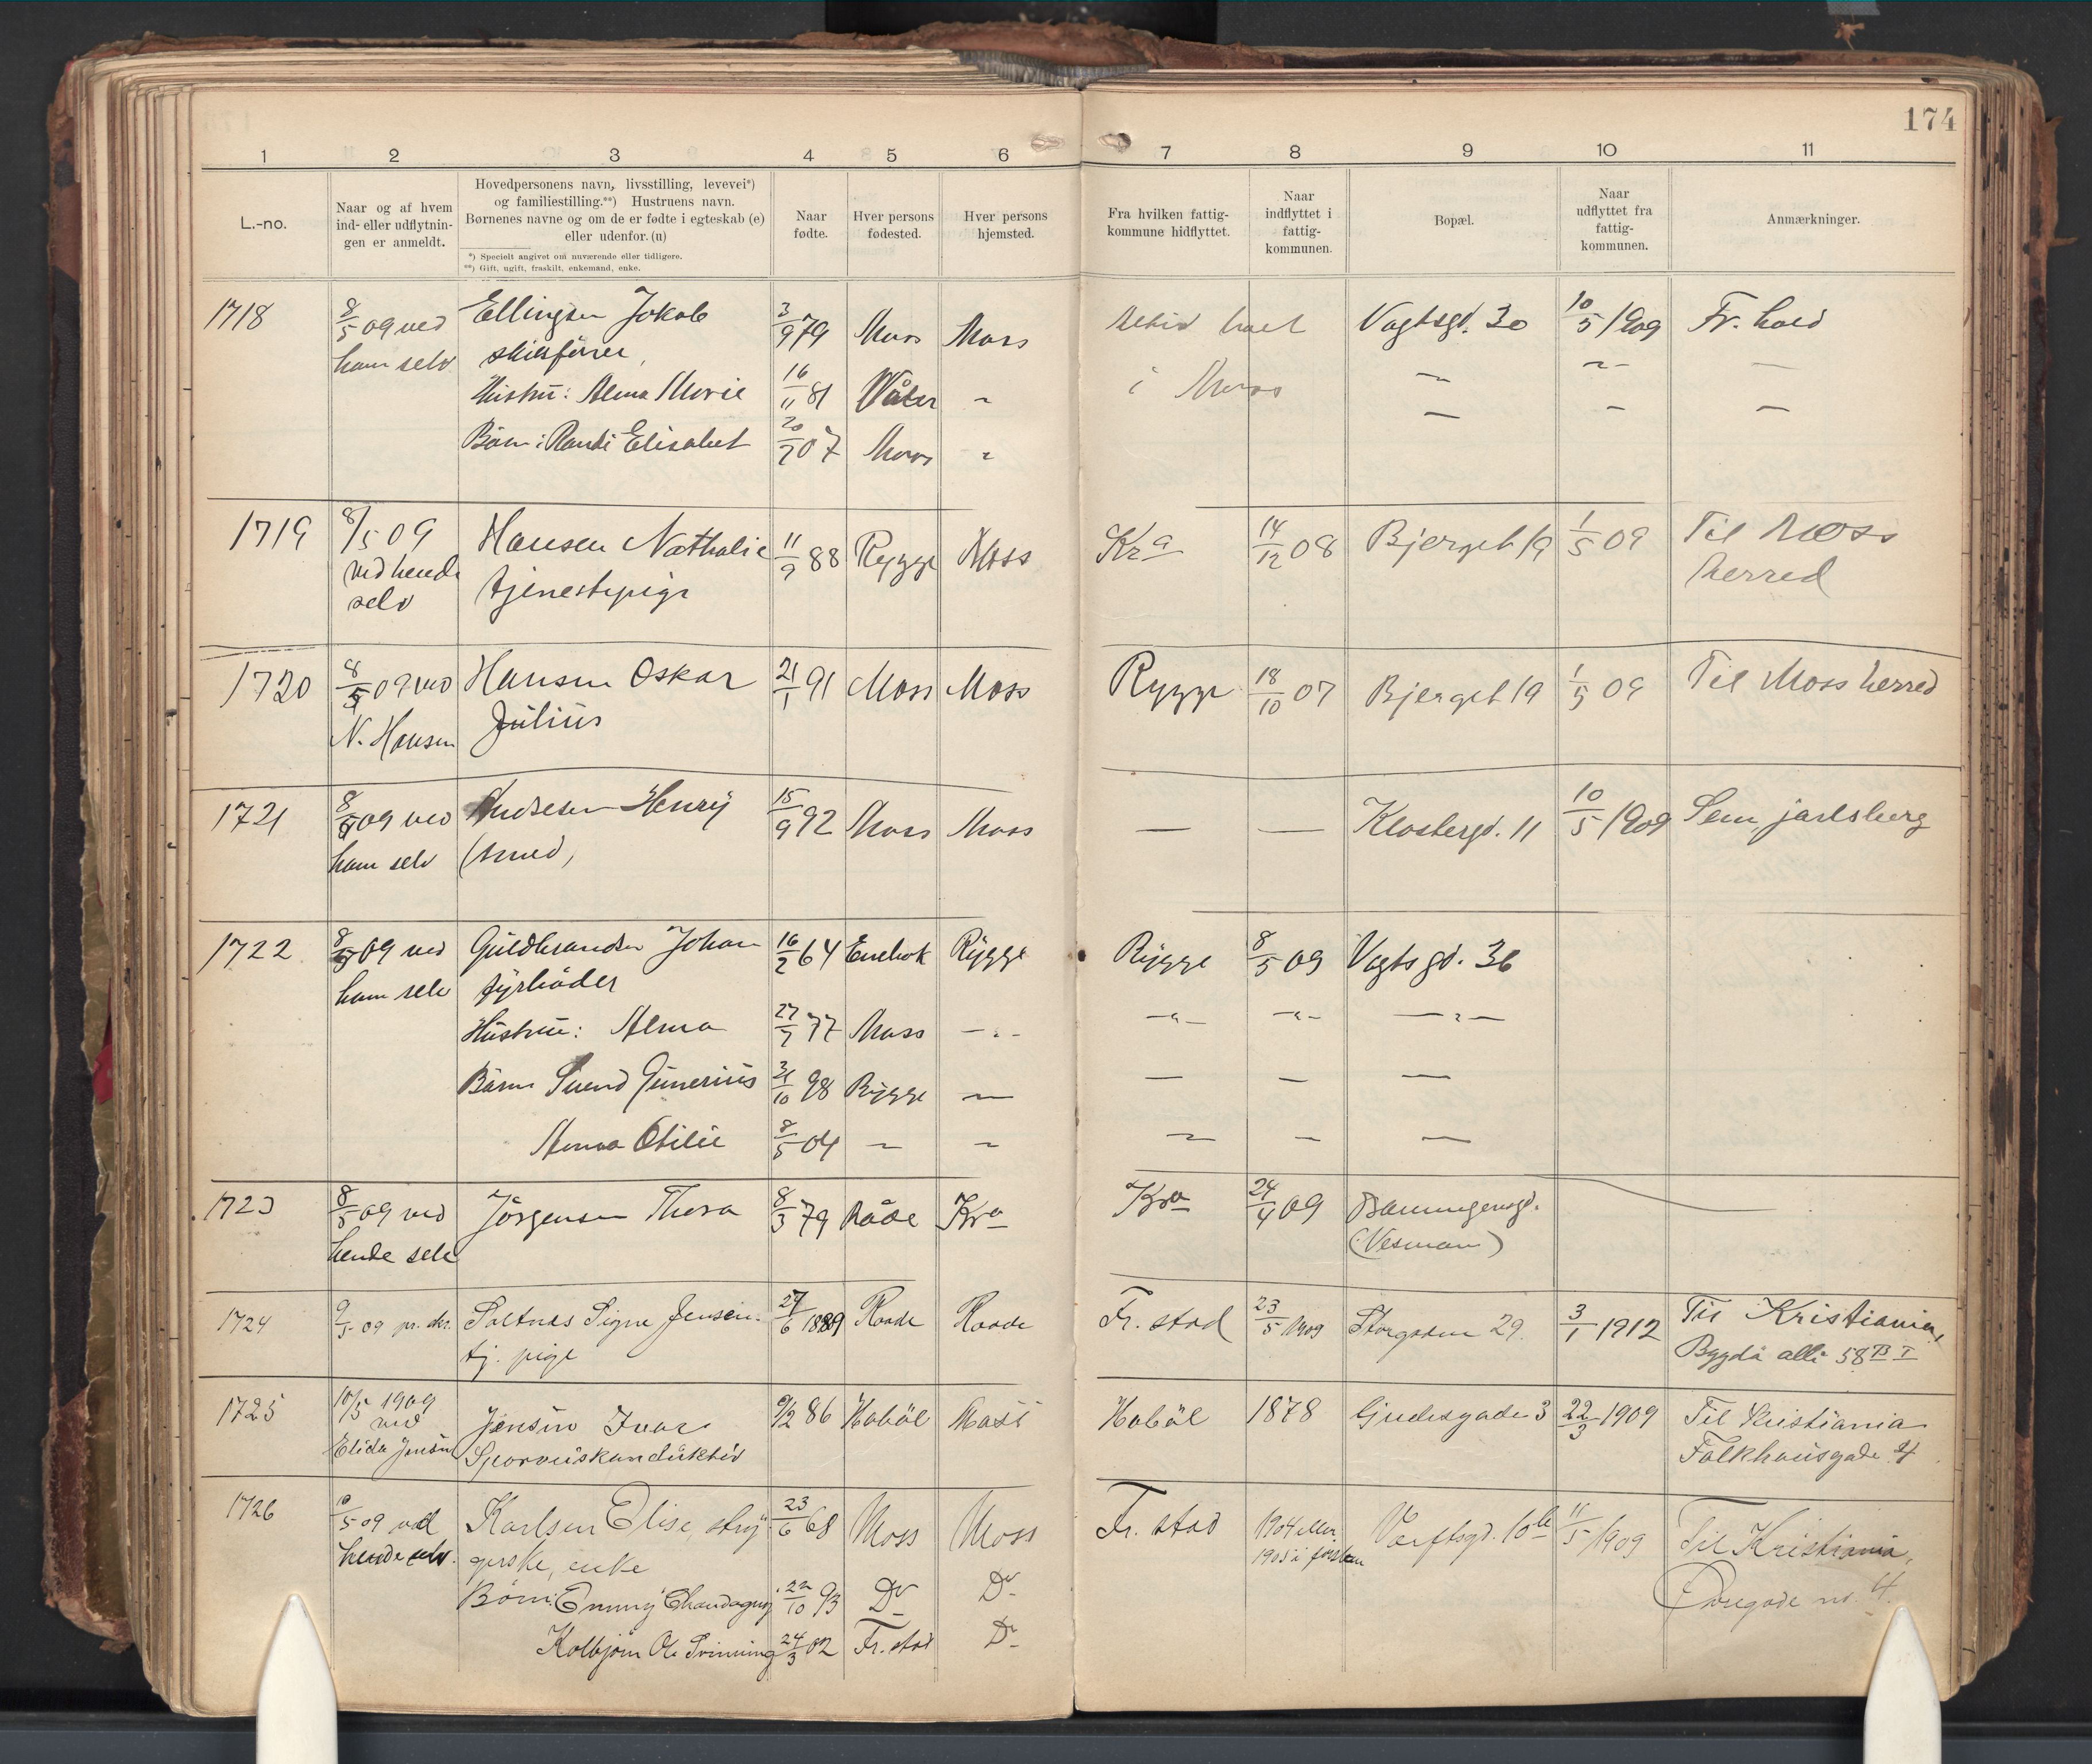 174
1 2 3 4 5 6 7 8 9 10 11
L.-no.
Naar og af hvem
ind- eller udflytnin-
gen er anmeldt.
Hovedpersonens navn, livsstilling, levevei*)
og familiestilling.**) Hustruens navn.
Børnenes navne og om de er fødte i egteskab (e)
eller udenfor. (u)
*) Specielt angivet om nuværende eller tidligere.
**) Gift, ugift, fraskilt, enkemand, enke.
Naar
fødte.
Hver persons
fødested.
Hver persons
hjemsted.
Fra hvilken fattig-
kommune hidflyttet.
Naar
indflyttet i
fattig-
kommunen.
Bopæl.
Naar
udflyttet fra
fattig-
kommunen.
Anmærkninger.
1718 8/5 09 ved Ellingsen Jokob 3/9 79 Moss Moss Altid boet Vogtsgd. 30 10/5 1909 Fr. hald
ham selv skibsfører, i Moss — „ — —
Hustru: Alma Marie 16/11 81 Våler „ — — —
Børn: Randi Elisabet 20/7 07 Moss „
1719 8/5 09 Hansen Nathalie 11/9 88 Rygge Moss Kra 14/12 08 Bjerget 19 1/5 09 Til Moss
ved hende tjenestepige herred
selv
1720 8/5 09 ved Hansen Oskar 21/1 91 Moss Moss Rygge 18/10 07 Bjerget 19 1/5 09 Til Moss herred
N. Hansen Julius
1721 8/5 09 ved Andresen Henry 15/9 92 Moss Moss — — Klostergd. 11 10/5 1909 Sem, jarlsberg
ham selv (smed)
1722 8/5 09 ved Guldbrandsen Johan 16/2 64 Enebok Rygge Rygge 8/5 09 Vogtsgd. 36
ham selv fyrbøder
Hustru: Alma 27/7 77 Moss — „ — — „ — — „ — — „ —
Børn Svend Gunerius 31/10 98 Rygge — — — —
Anna Otilie 8/5 04 — — — — —
1723 8/5 09 ved Jørgensen Thora 8/3 79 Råde Kra Kra 24/4 09
hende selv (Vesman)
1724 9/5 09 pr. skr. Saltnes Signe Jensen. 27/6 1889 Raade Raade Fr. stad 23/5 1909 Storgaden 29. 3/1 1912 Til Kristiania,
tj. pige Bygdø allé 58 B I
1725 10/5 1909 Jensen Ivar 9/2 86 Hobøl Moss Hobøl 1878 Gudesgade 3 22/3 1909 Til Kristiania
ved Sporveiskonduktør Falkhausgade 4
Elida Jensen
1726 10/5 09 ved Karlsen Elise, stry- 23/6 68 Moss Moss Fr. stad 1904 eller Værftsgd. 10 b 11/5 1909 Til Kristiania,
hende selv. gerske, enke 1905 i første no. 4.
Børn: Emmy 22/10 93 Do Do
Kolbjørn Ole Svinning 24/3 02 Fr. stad Do